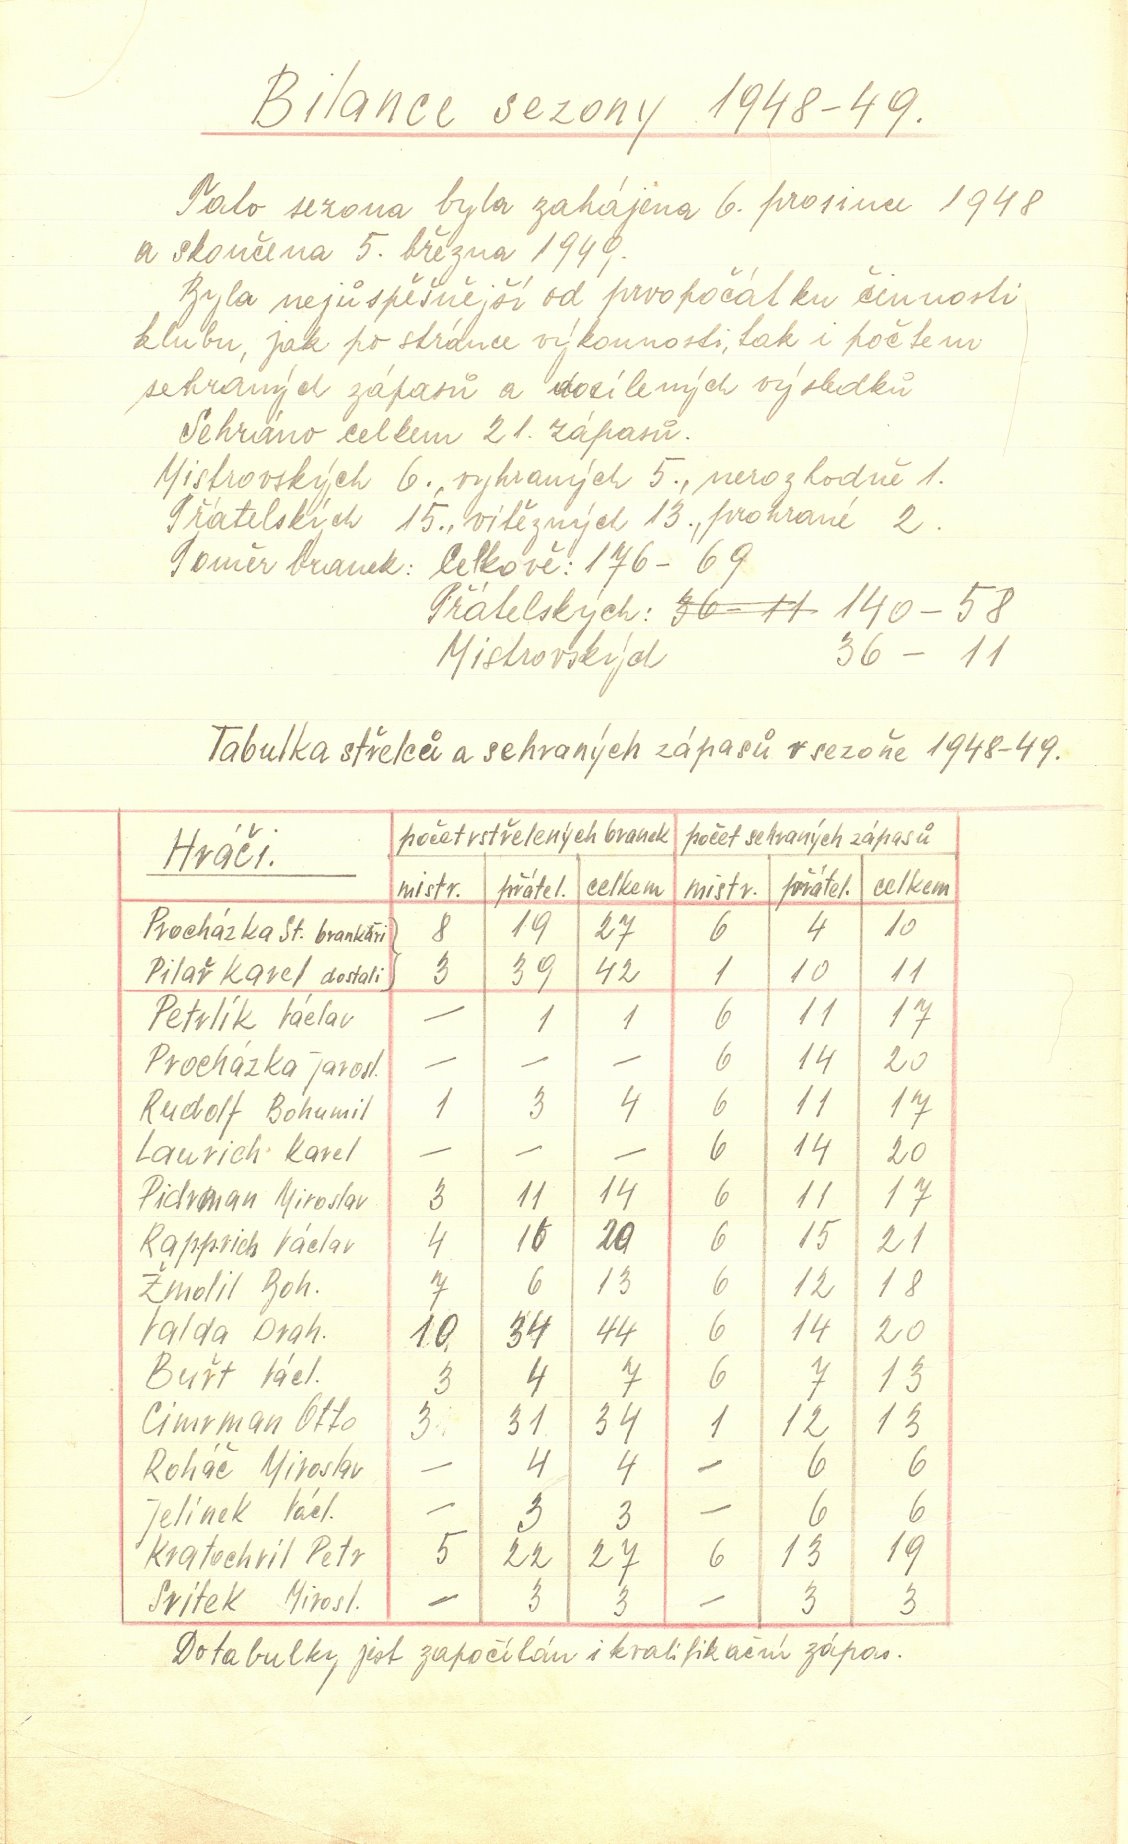 Bilance sezony 1948-49.
Tato sezona byla zahájena 6. prosince 1948
a skončena 5. března 1949.
Byla nejúspěšnější od prvopočátku činnosti
klubu, jak po stránce výkonnosti, tak i počtem
sehraných zápasů a docílených výsledků
Sehráno celkem 21. zápasů.
Mistrovských 6., vyhraných 5., nerozhodně 1.
Přátelských 15., vítězných 13., prohrané 2.
Poměr branek: Celkově: 176 - 69
Přátelských: 36 - 11 140 - 58
Mistrovských 36 - 11
Tabulka střelců a sehraných zápasů v sezoňe 1948-49.
Hráči. počet vstřelených branek počet sehraných zápasů
mistr. přátel. celkem mistr. přátel. celkem
Procházka St. brankáři 8 19 27 6 4 10
Pilař Karel dostali 3 39 42 1 10 11
Petrlík Václav — 1 1 6 11 17
Procházka Jarosl. — — — 6 14 20
Rudolf Bohumil 1 3 4 6 11 17
Laurich Karel — — — 6 14 20
Pidrman Miroslav 3 11 14 6 11 17
Rapprich Václav 4 16 20 6 15 21
Žmolil Boh. 7 6 13 6 12 18
Valda Drah. 10 34 44 6 14 20
Buřt Václ. 3 4 7 6 7 13
Cimrman Otto 3 31 34 1 12 13
Roháč Miroslav — 4 4 — 6 6
Jelínek Václ. — 3 3 — 6 6
Kratochvil Petr 5 22 27 6 13 19
Svítek Mirosl. — 3 3 — 3 3
Do tabulky jest započítán i kvalifikační zápas.